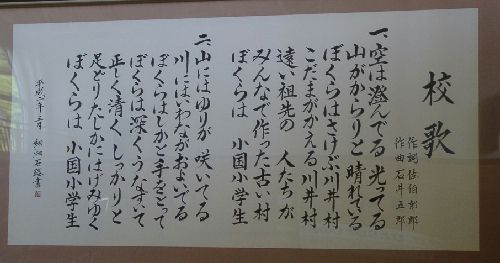 校歌
作詞 佐伯郁郎
作曲 石井五郎
一、空は澄んでる 光ってる
山がからりと晴れている
ぼくらはさけぶ川井村
こだまがかえる川井村
遠い祖先の 人たちが
みんなで作った古い村
ぼくらは 小国小学生
二、山にはゆりが 咲いてる
川にはいわながおよいでる
ぼくらはしかと手をとって
ぼくらは深くうなずいて
正しく清く しっかりと
足どりたしかにはげみゆく
ぼくらは 小国小学生
平成 年 三月